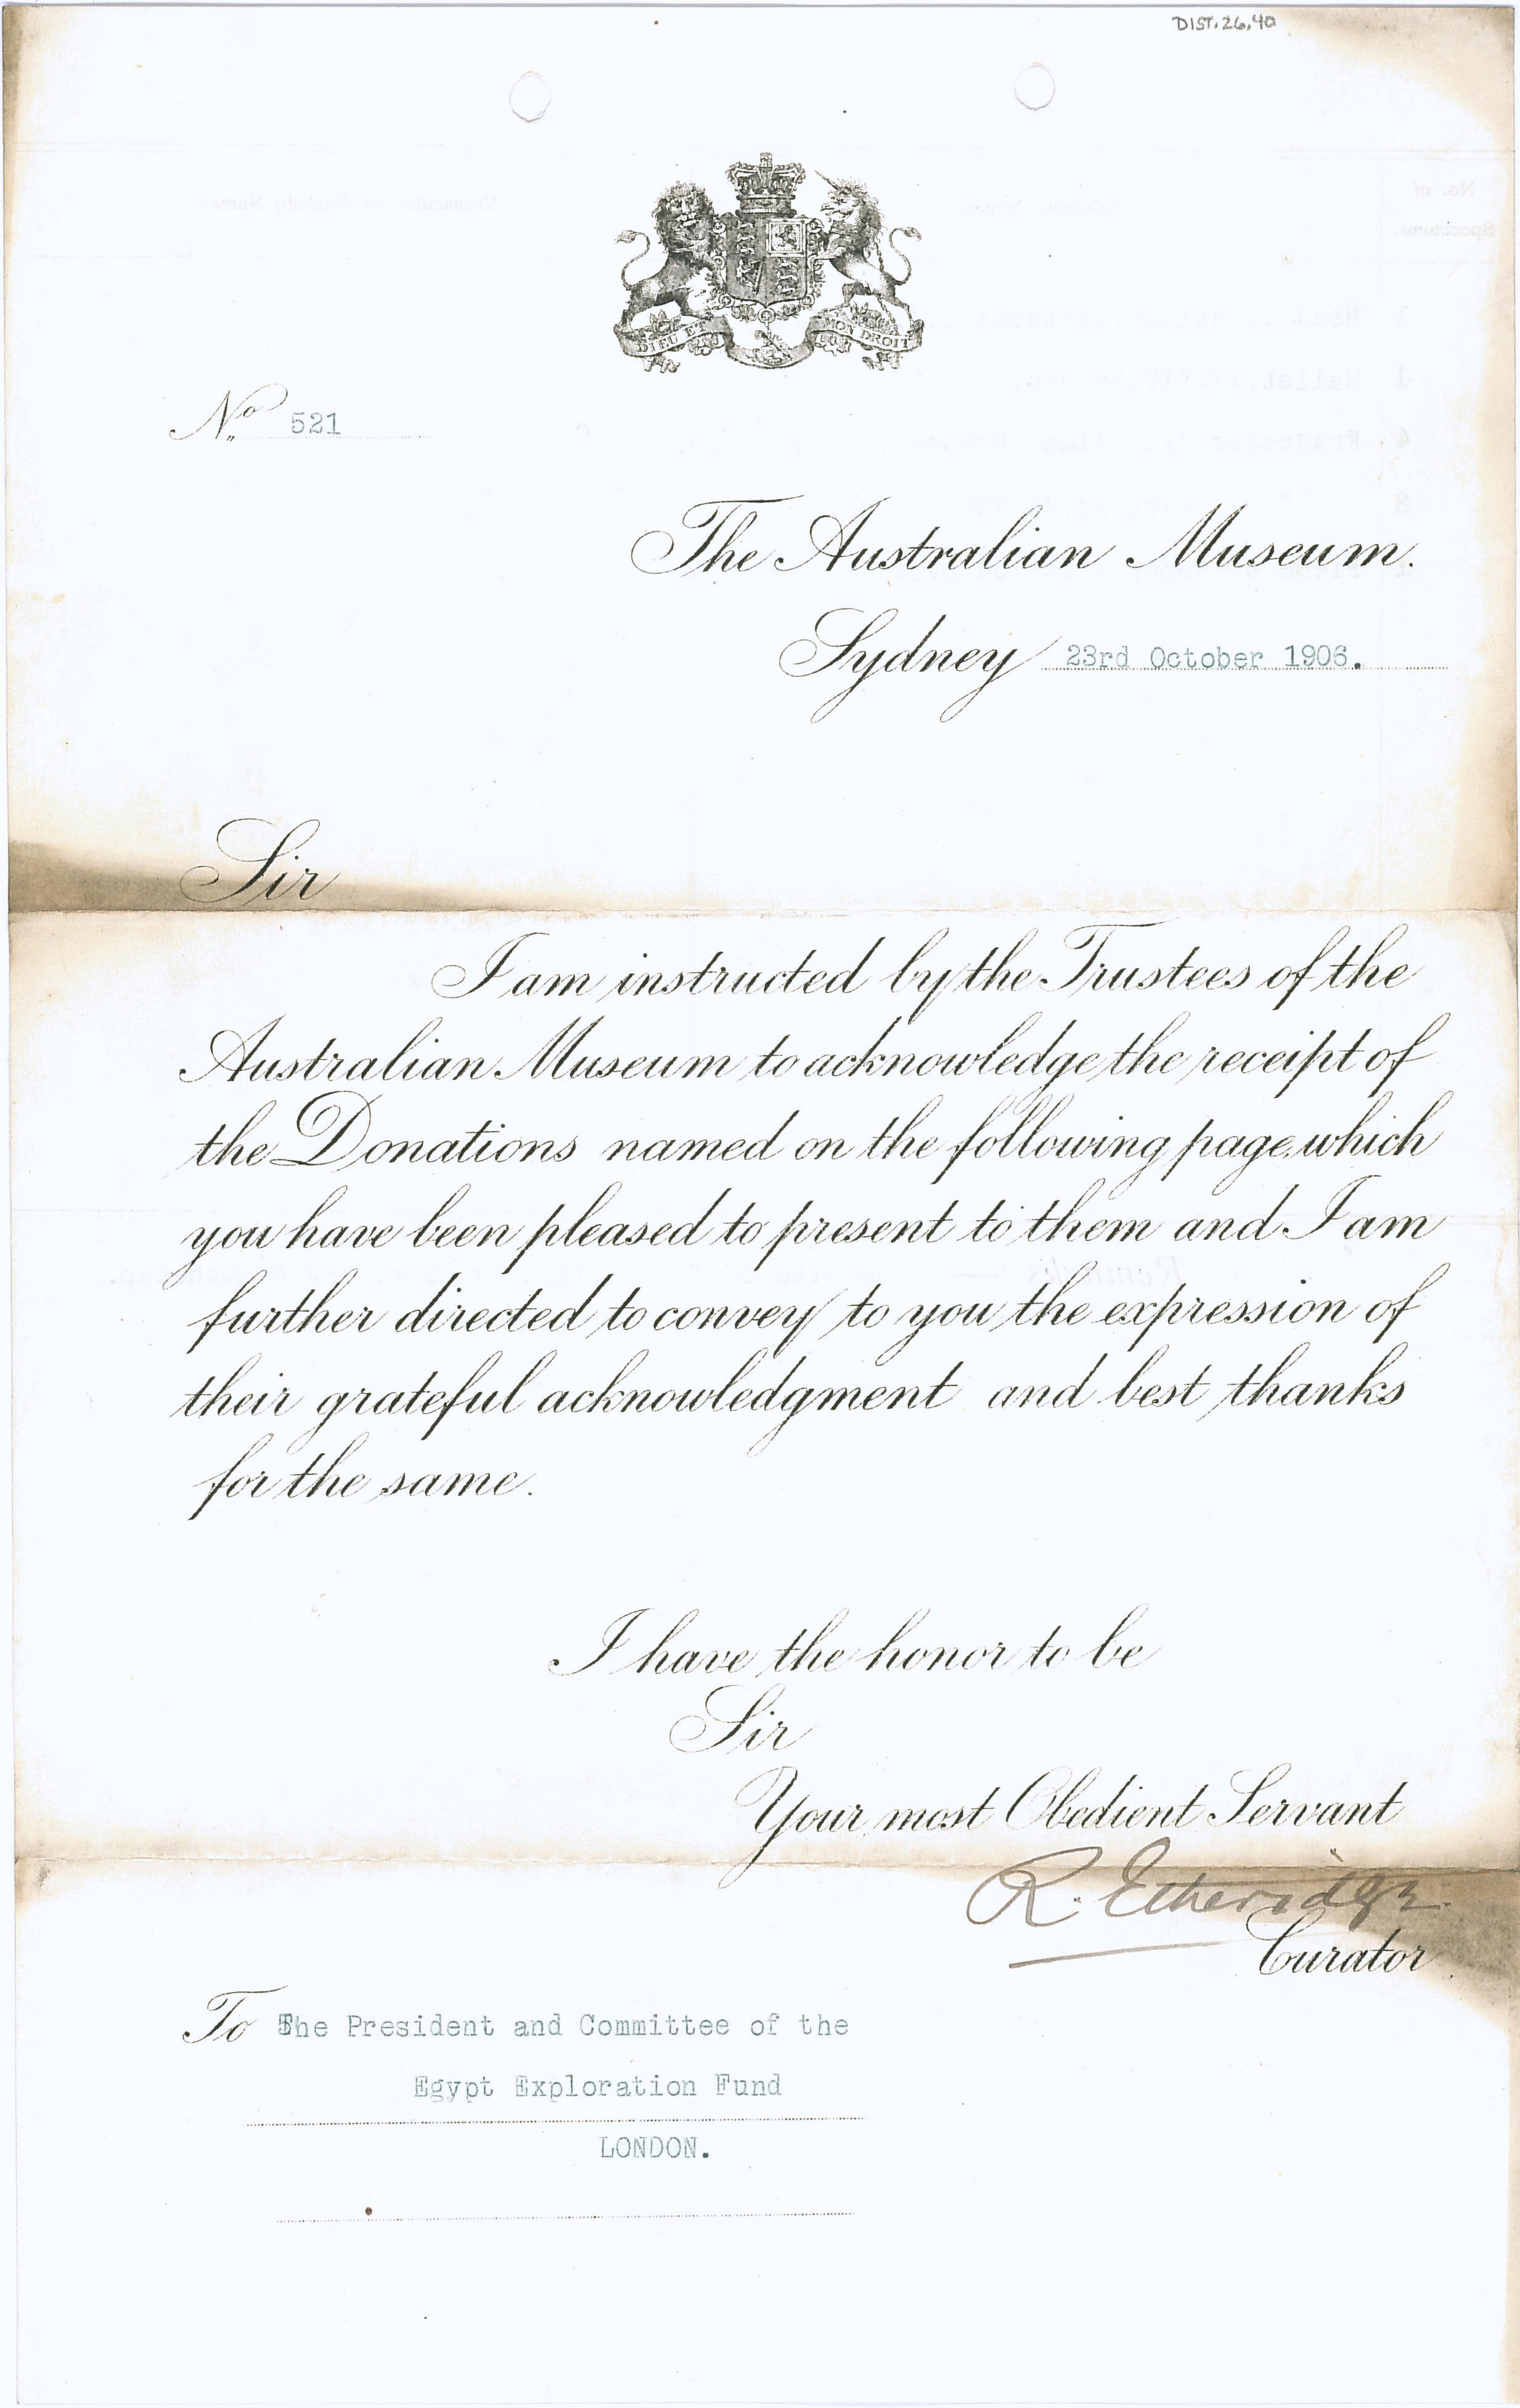 DIST.26.40
DIEU ET MON DROIT
No 521
The Australian Museum.
Sydney 23rd October 1906.
Sir
I am instructed by the Trustees of the
Australian Museum to acknowledge the receipt of
the Donations named on the following page, which
you have been pleased to present to them and I am
further directed to convey to you the expression of
their grateful acknowledgment and best thanks
for the same.
I have the honor to be
Sir
Your most Obedient Servant
R. Etheridge
Curator
To The President and Committee of the
Egypt Exploration Fund
LONDON.